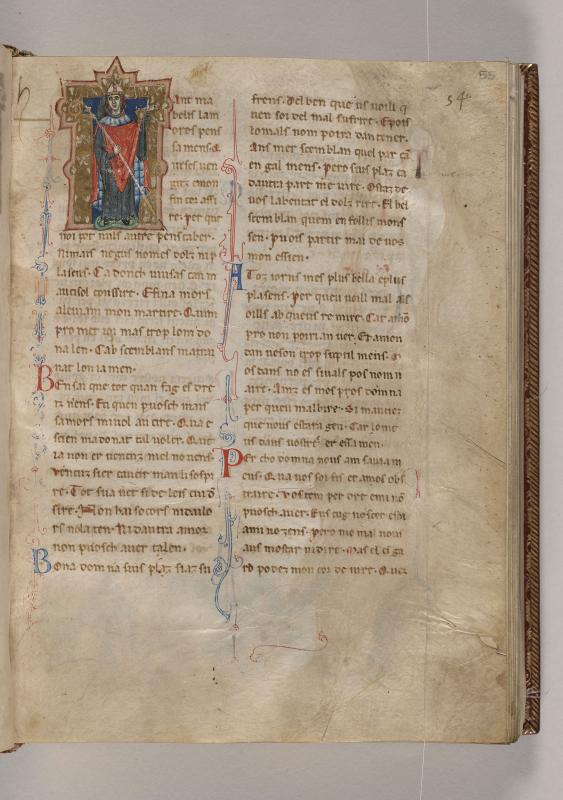 55
54
ant ma
belis lam
oros pens
sa mens. Q
fin cor assi
re. per que
noi pot nuls autre pens caber.
nimais negus nomes dolz ni p
lasens.
aucisol consire. E fina mors
aleviam mon martire. Quim
pro met ioi mas trop lom do
na len. Cab semblans matrai
nat loniamen.
Ben sai que tot quan faz es dre
iz niens. Eu quen puosch mais
samors mi vol aucire. Qua e
scien ma donat tal voler. Que
ia non er vencuz niel no vens.
Vencuz sier
re. Tot sua
sire. Non hai socors
rs nolaten. Ni dautra amor
non puosch aver talen.
Bona domna sius plaz siaz su
frens. Del ben queus voill q
uen soi del mal sufrire. E pois
lo mals nom poira dan tener.
Ans mer semblan quel par
en gal mens. Pero sius plaz
dautra part me vire. Ostaz de
vos la beutat el dolz rire. El bel
semblan quem en follis mons
sen. Puois partir mai de vos
mon essien.
A toz iorns mes plus bella e plus
plasens. Per queu voill mal als
oills ab queus remire. Car
pro non poirian ver. Et a mon
dan veson trop suptil mens.
os dans no es sivals pos nom n
aire. Anz es mos pros domna
per queu malbire. Si mauciez
que nous estara gen. Car lo me
us dans vostre er essamen.
Per cho domna nous am savia m
ens. Qua vos soi fis
traire.
puosch aver.
ami nozens. Pero me mal nous
aus mostrar ni dire. Mas el esga
rd podez mon cor devire. Quer